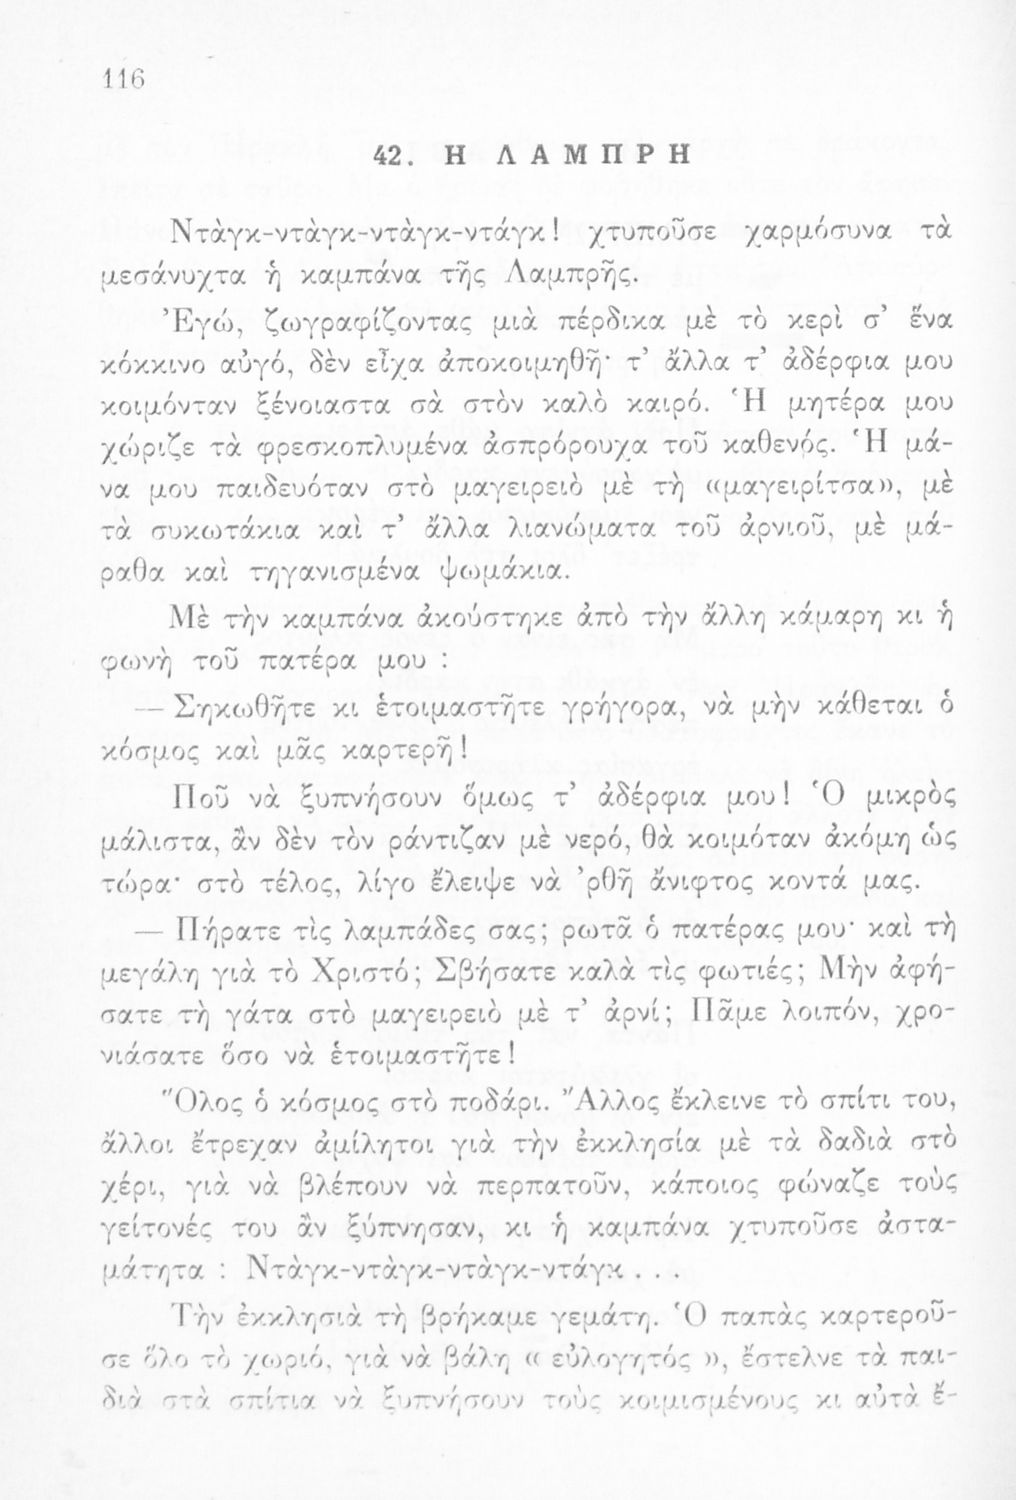 116
42. Η ΛΑΜΠΡΗ
Ντὰγκ-ντὰγκ-ντὰγκ-ντάγκ! χτυποῦσε χαρμόσυνα τὰ
μεσάνυχτα ἡ καμπάνα τῆς Λαμπρῆς.
Ἐγώ, ζωγραφίζοντας μιὰ πέρδικα μὲ τὸ κερὶ σ’ ἕνα
κόκκινο αὐγό, δὲν εἶχα ἀποκοιμηθῆ· τ’ ἄλλα τ’ ἀδέρφια μου
κοιμόνταν ξένοιαστα σὰ στὸν καλὸ καιρό. Ἡ μητέρα μου
χώριζε τὰ φρεσκοπλυμένα ἀσπρόρουχα τοῦ καθενός. Ἡ μά-
να μου παιδευόταν στὸ μαγειρειὸ μὲ τὴ «μαγειρίτσα», μὲ
τὰ συκωτάκια καὶ τ’ ἄλλα λιανώματα τοῦ ἀρνιοῦ, μὲ μά-
ραθα καὶ τηγανισμένα ψωμάκια.
Μὲ τὴν καμπάνα ἀκούστηκε ἀπὸ τὴν ἄλλη κάμαρη κι ἡ
φωνὴ τοῦ πατέρα μου :
— Σηκωθῆτε κι ἑτοιμαστῆτε γρήγορα, νὰ μὴν κάθεται ὁ
κόσμος καὶ μᾶς καρτερῆ!
Ποῦ νὰ ξυπνήσουν ὅμως τ’ ἀδέρφια μου! Ὁ μικρὸς
μάλιστα, ἂν δὲν τὸν ράντιζαν μὲ νερό, θὰ κοιμόταν ἀκόμη ὡς
τώρα· στὸ τέλος, λίγο ἔλειψε νὰ ’ρθῆ ἄνιφτος κοντά μας.
— Πήρατε τὶς λαμπάδες σας; ρωτᾶ ὁ πατέρας μου· καὶ τὴ
μεγάλη γιὰ τὸ Χριστό; Σβήσατε καλὰ τὶς φωτιές; Μὴν ἀφή-
σατε τὴ γάτα στὸ μαγειρειὸ μὲ τ’ ἀρνί; Πᾶμε λοιπόν, χρο-
νιάσατε ὅσο νὰ ἑτοιμαστῆτε!
Ὅλος ὁ κόσμος στὸ ποδάρι. Ἄλλος ἔκλεινε τὸ σπίτι του,
ἄλλοι ἔτρεχαν ἀμίλητοι γιὰ τὴν ἐκκλησία μὲ τὰ δαδιὰ στὸ
χέρι, γιὰ νὰ βλέπουν νὰ περπατοῦν, κάποιος φώναζε τοὺς
γείτονές του ἂν ξύπνησαν, κι ἡ καμπάνα χτυποῦσε ἀστα-
μάτητα : Ντὰγκ-ντὰγκ-ντὰγκ-ντάγκ . . .
Τὴν ἐκκλησιὰ τὴ βρήκαμε γεμάτη. Ὁ παπὰς καρτεροῦ-
σε ὅλο τὸ χωριό, γιὰ νὰ βάλη « εὐλογητός », ἔστελνε τὰ παι-
διὰ στὰ σπίτια νὰ ξυπνήσουν τοὺς κοιμισμένους κι αὐτὰ ἔ-